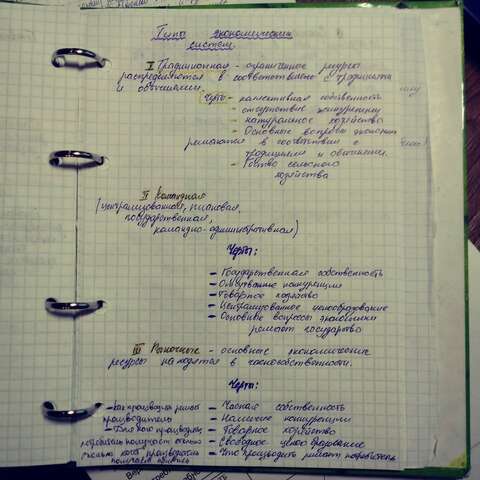 Типы экономических
систем.
I Традиционная - ограниченные ресурсы
распределяются в соответствие с традициями
и обычаями.
Черты - коллективная собственность
- отсутствие конкуренции
- натуральное хозяйство
- Основные вопросы экономики
решаются в соответствии с
традициями и обычаями.
сельского
хозяйства
II Командная
(централизованная, плановая,
государственная,
командно-административная)
Черты:
- Государственная собственность
- Отсутствие конкуренции
- Товарное хозяйство
- Централизованное ценообразование
- Основные вопросы экономики
решает государство
III Рыночные - основные экономические
ресурсы находятся в частнособственности.
Черты:
- Частная собственность
- Наличие конкуренции
- Товарное хозяйство
- Свободное ценообразование
- Что производить решает потребитель
- Как производить решает
производитель
- Для кого производить,
потребитель получает
столько кого производитель
получает прибыль